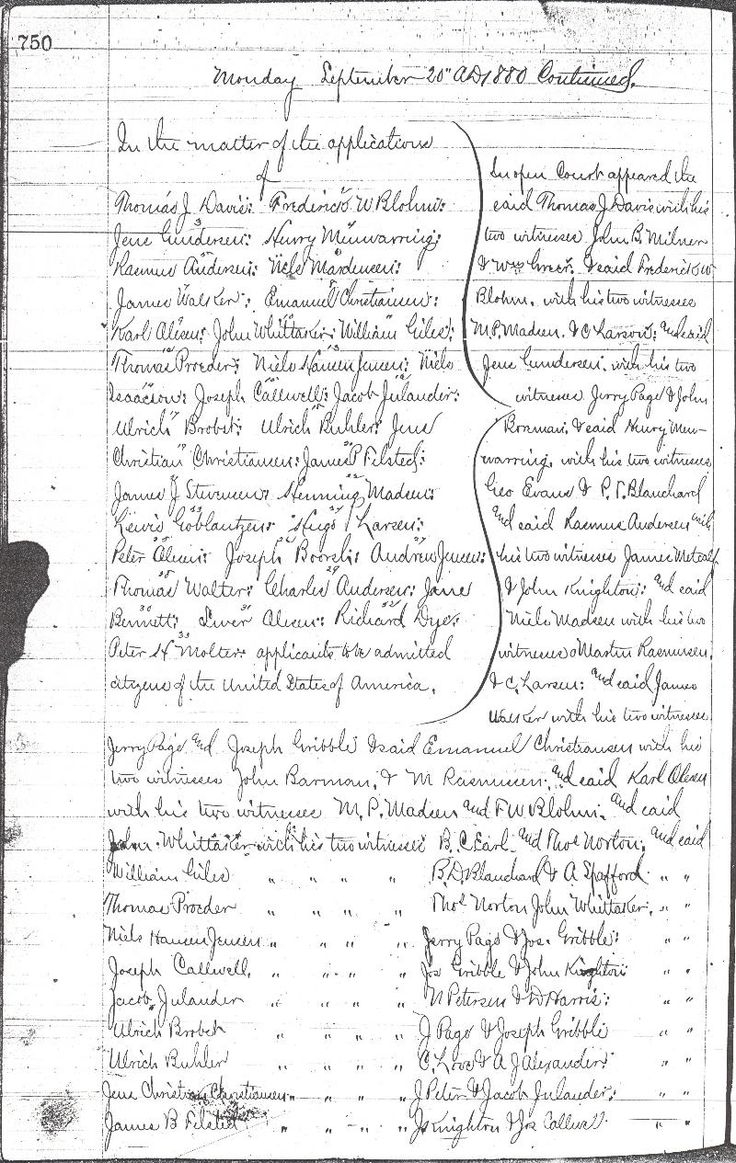 750
Monday September 20" A.D. 1880 Continued.
In the matter of the applications
of
Thomas J. Davis: Frederick W Blohm:
Jens Gundersen: Henry Menwarring:
Rasmus Andersen: Niels Madencen:
James Walker: Emanuel Christiansen:
Karl Olesen: John Whittaker: William Giles:
Thomas Proeder: Niels Hansen Jensen: Niels
Isaacson: Joseph Callwell: Jacob Julander:
Ulrich Brobet: Ulrich Buhler: Jens
Christian Christiansen: James P. Filsted:
James J Stevensen: Henning Madsen:
Lewis Goblantzen: Hugo Larsen:
Peter Olesen: Joseph Boorsli: Andrew Jensen:
Thomas Walter: Charles Andersen: Jane
Bennett: Iwer Olesen: Richard Dye:
Peter H Molter: applicants to be admitted
citizens of the United States of America.
In open Court appeared the
said Thomas J. Davis with his
two witnesses John B. Milner
& Wm Greer. & said Frederick W
Blohm. with his two witnesses
M.P. Madsen. & C Larson: and said
Jens Gundersen. with his two
witnesses Jerry Page & John
Borman. & said Henry Men-
warring. with his two witnesses
Geo Evans & P. T. Blanchard
and said Rasmus Andersen with
his two witnesses James Metcalf
& John Knighton: and said
Niels Madsen with his two
witnesses Martin Rasmussen.
& C. Larsen: and said James
Walker with his two witnesses
Jerry Page and Joseph Gribble & said Emanuel Christiansen with his
two witnesses John Barman, & M Rasmussen. and said Karl Olesen
with his two witnesses M. P. Madsen and F W Blohm. and said
John Whittaker with his two witnesses B. C. Earl and Thos Norton; and said
William Giles " " " " B. D Blanchard & A Spafford " "
Thomas Proeder " " " " Thos Norton John Whittaker, " "
Niels Hansen Jensen " " " " Jerry Page & Jos. Gribble: " "
Joseph Callwell, " " " " Jos Gribble & John Knighton " "
Jacob Julander " " " " N Petersen & D Harris: " "
Ulrich Brobet " " " " J Page & Joseph Gribble " "
Ulrich Buhler " " " " C. Love & A J Alexander: " "
Jens Christian Christiansen " " " " J Peter & Jacob Julander: " "
James B Filsted " " " " J. Knighton & Jos Callwell. " "